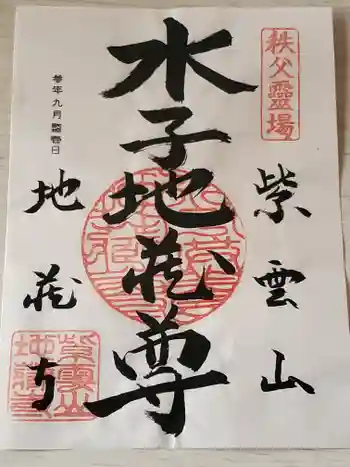 秩父靈場
紫雲山
水子地蔵尊
参年九月吉日
地蔵寺
紫雲山
地蔵寺